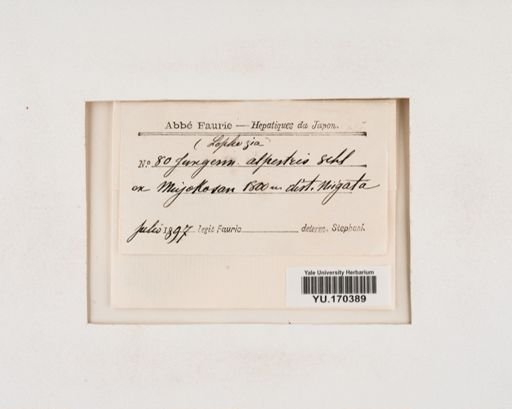 Abbé Faurie — Hepatiques du Japon.
(Lophozia)
No. 80 Jungerm. alpestris Schl
on Myokosan 1500 m dist. Niigata
Julio 1897 legit Faurie determ. Stephani.
Yale University Herbarium
YU.170389